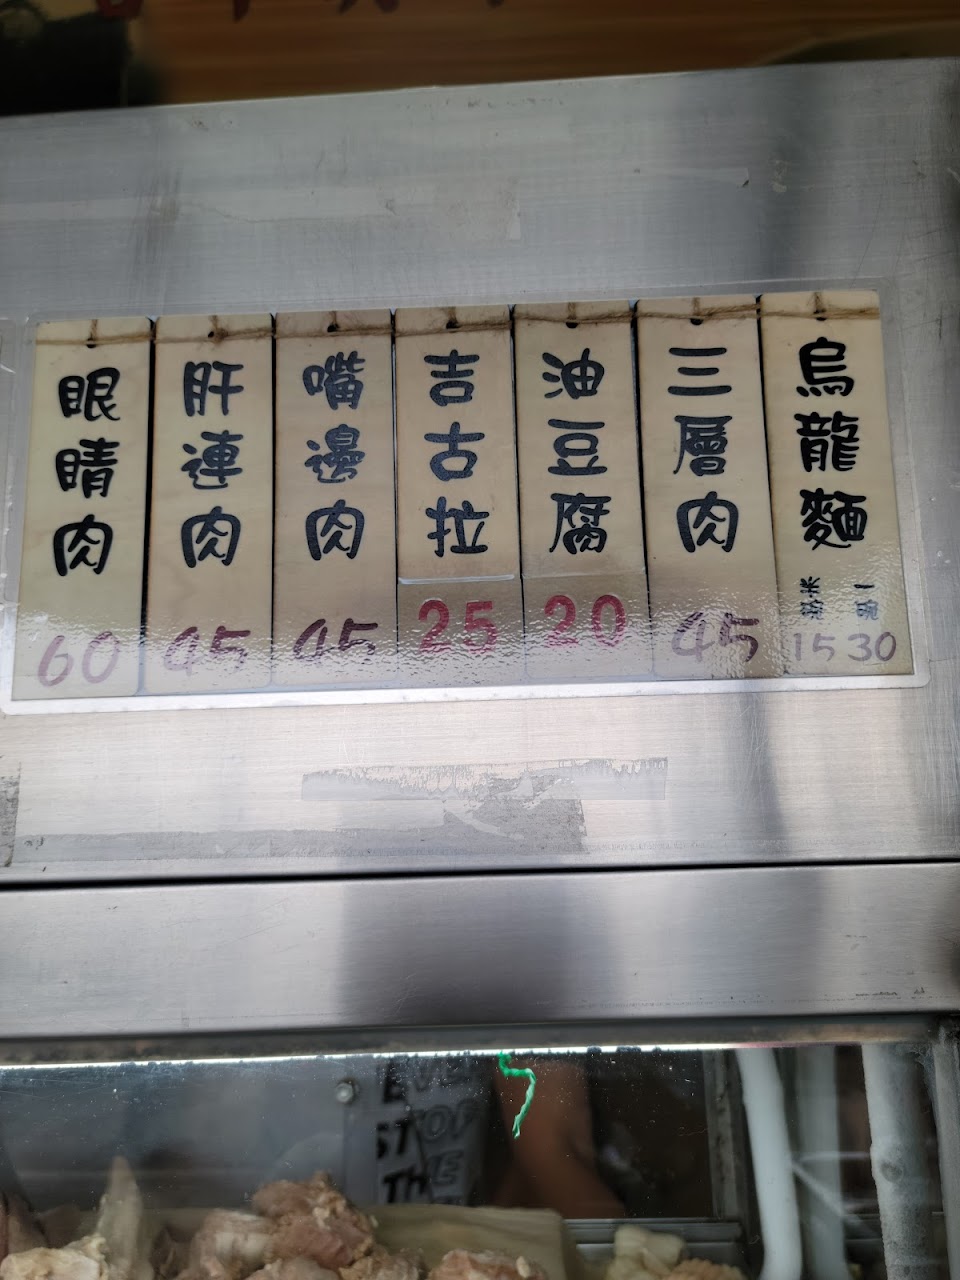 眼睛肉
60
肝連肉
45
嘴邊肉
45
吉古拉
25
油豆腐
20
三層肉
45
烏龍麵
一碗
30
米粉
15
EVE
STOP
THE